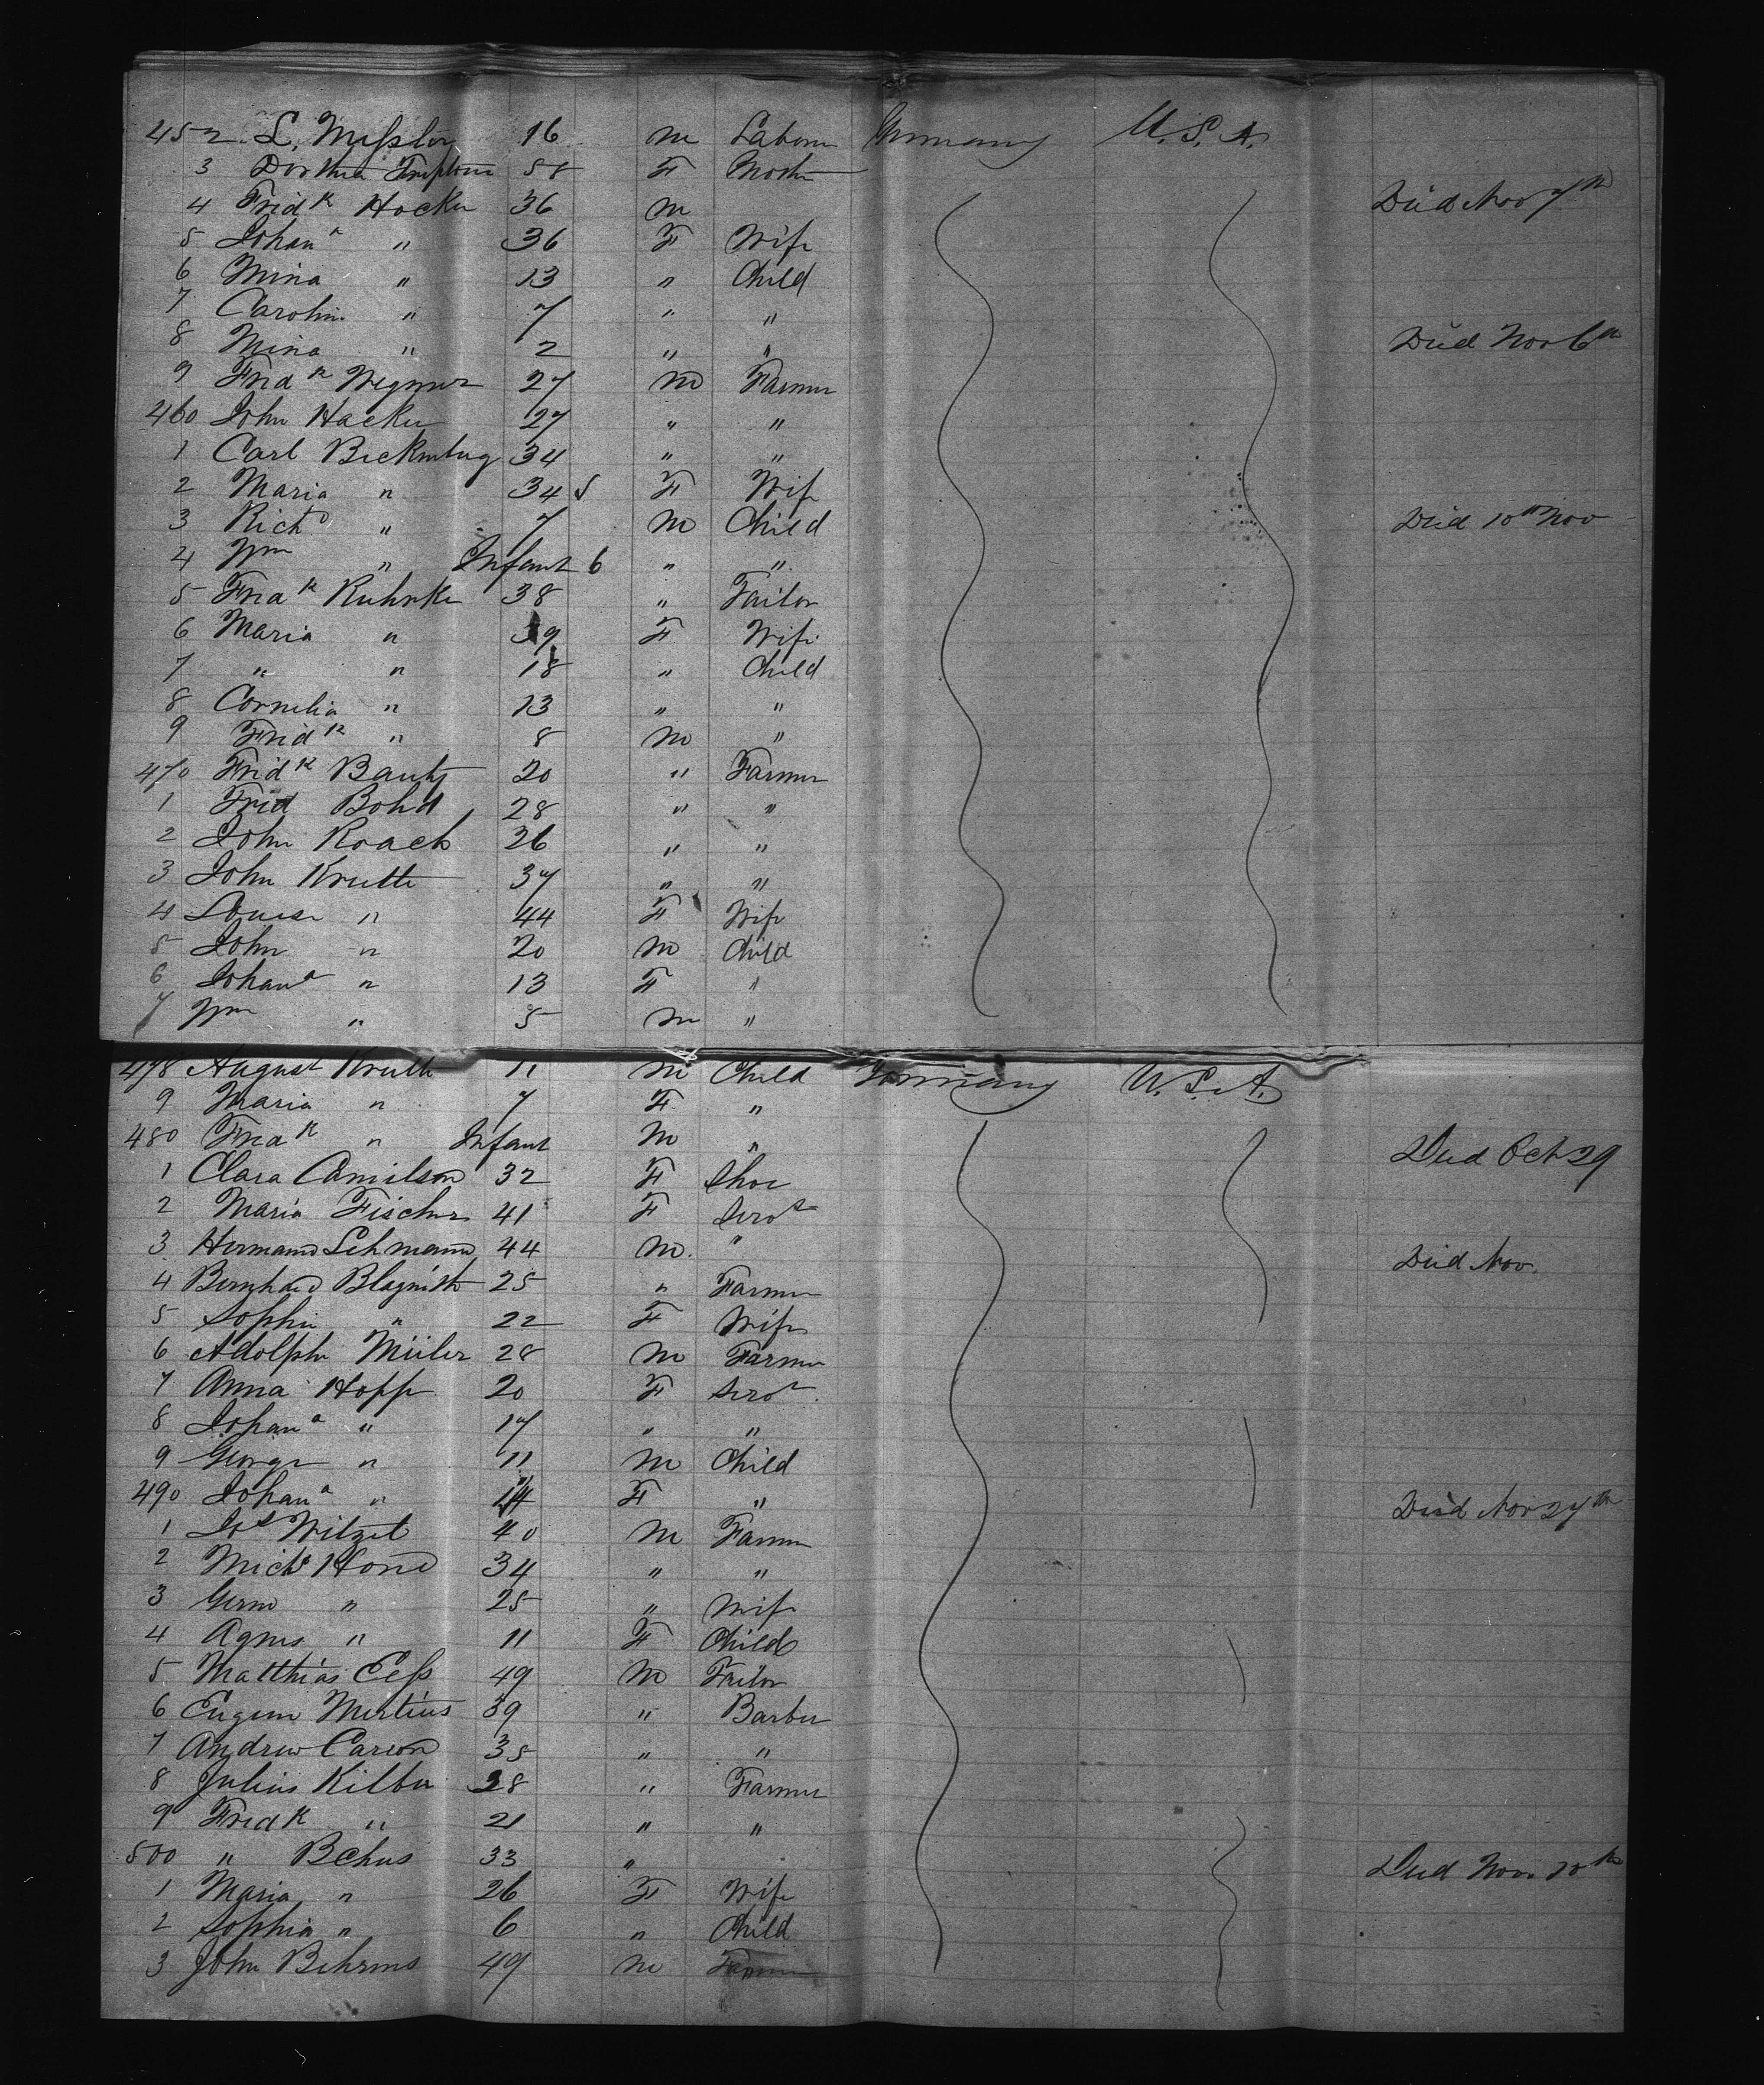 452 L. Meßler 16 m Laborer Germany U.S.A.
3 Dorthea 58 F Mother
4 Fredk Hocker 36 m Died Nov 7th
5 Johana " 36 F Wife
6 Mina " 13 " Child
7 Carolin " 7 " "
8 Mina " 2 " " Died Nov 6th
9 Fredk Wegner 27 m Farmer
460 John Hacker 27 " "
1 Carl 34 " "
2 Maria " 34 F Wife
3 Richd " 7 m Child Died 10th Nov
4 Wm " Infant 6 " "
5 Fredk Ruhnke 38 " Tailor
6 Maria " 39 F Wife
7 " " 18 " Child
8 Cornelia " 13 " "
9 Fredk " 8 m "
470 Fredk Bautz 20 " Farmer
1 Fred Bohd 28 " "
2 John Roach 26 " "
3 John Krutte 37 " "
4 Louisa " 44 F Wife
5 John " 20 m Child
6 Johana " 13 F "
7 Wm " 5 m "
478 August Krutte 11 m Child Germany U.S.A.
9 Maria " 7 F "
480 Fredk " Infant m " Died Oct 29
1 Clara Camilson 32 F Shoe
2 Maria Fischer 41 F Servt
3 Hermann Lehmann 44 m. " Died Nov.
4 Bernhard 25 " Farmer
5 Sophie " 22 F Wife
6 Adolph Müller 28 m Farmer
7 Anna Hopp 20 F Servt
8 Johana " 17 " "
9 George " 11 m Child
490 Johana " F " Died Nov 27th
1 Jos Witzel 40 m Farmer
2 Michl Hond 34 " "
3 " 25 " Wife
4 Agnes " 11 F Child
5 Matthias Eeß 49 m Tailor
6 Eugene Mertius 39 " Barber
7 Andrew Careon 35 " "
8 Julius Kilber 28 " Farmer
9 Fredk " 21 " "
500 " Behus 33 " Died Nov. 10th
1 Maria " 26 F Wife
2 Sophia " 6 " Child
3 John Behrens 49 m Farmer